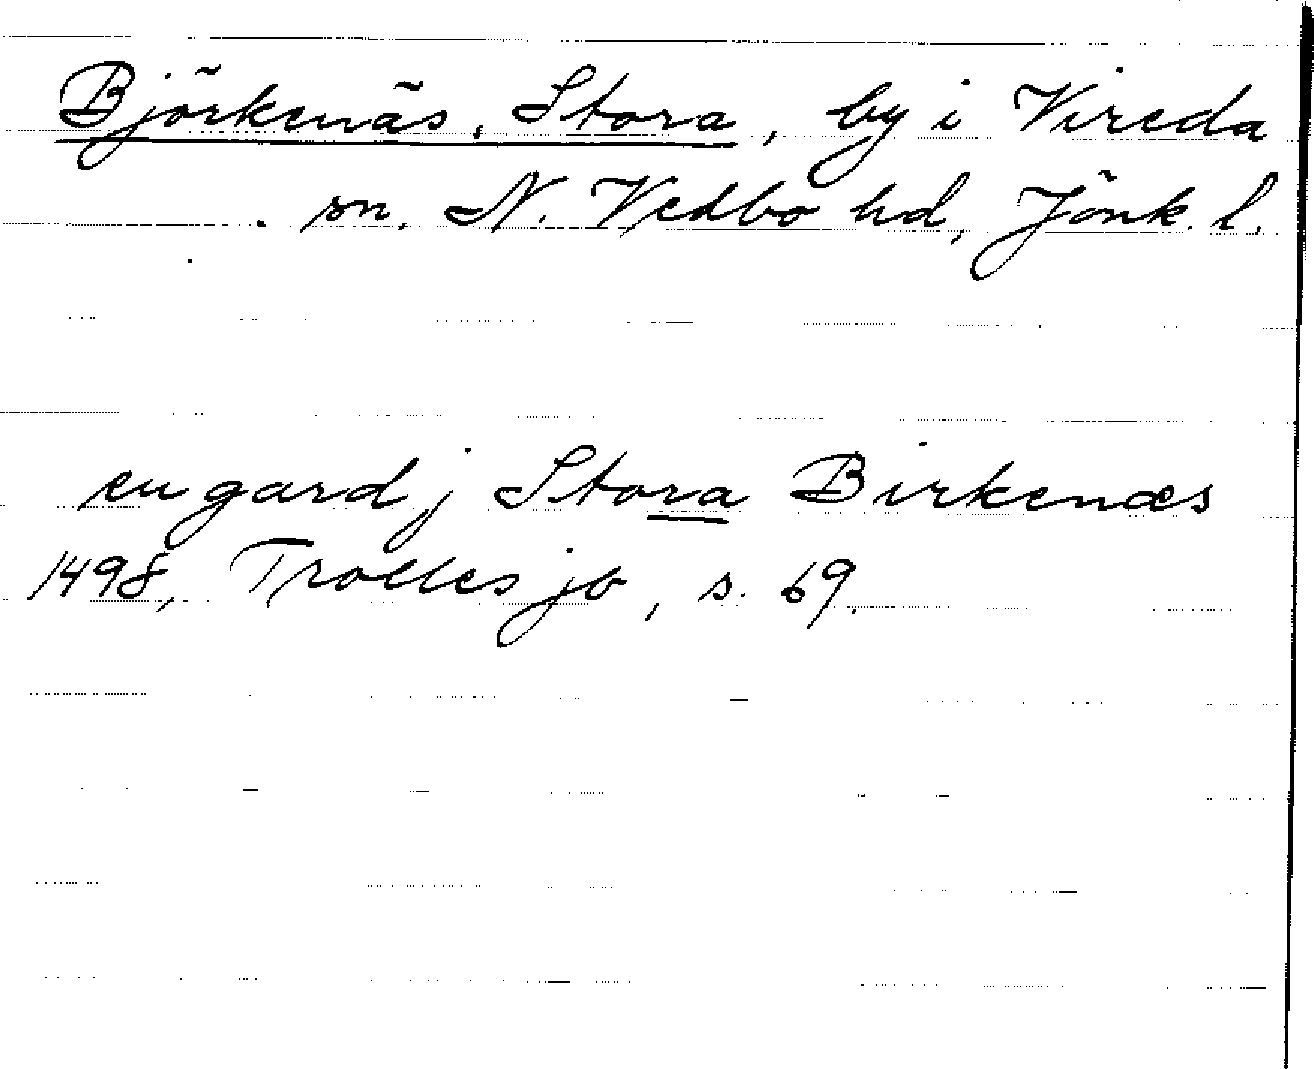 Björkenäs, Stora, by i Vireda
sn. N. Vedbo hd, Jönk. l.
en gard j Stora Birkenæs
1498, Trolles jb, s. 69.